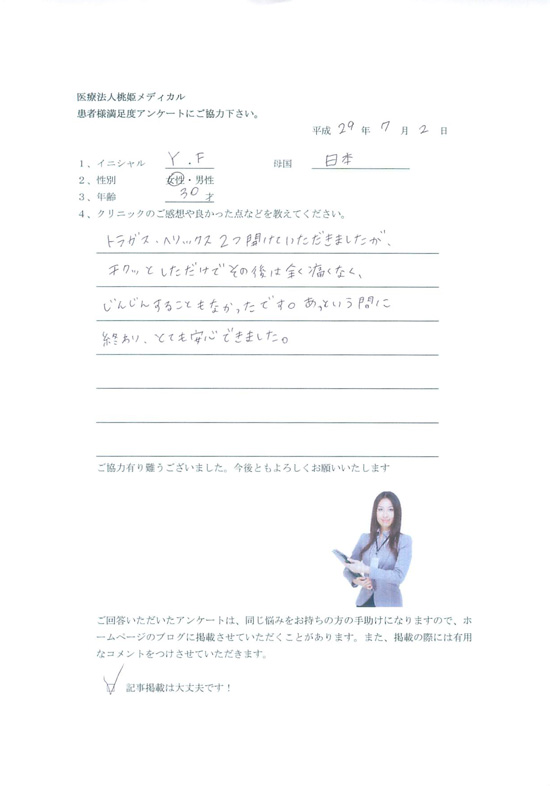 医療法人桃姫メディカル
患者様満足度アンケートにご協力下さい。
平成 29 年 7 月 2 日
1、イニシャル Y.F 母国 日本
2、性別 女性・男性
3、年齢 30 才
4、クリニックのご感想や良かった点などを教えてください。
トラグス・ヘリックス 2つ開けていただきましたが、
チクッとしただけでその後は全く痛くなく、
じんじんすることもなかったです。あっという間に
終わり、とても安心できました。
ご協力有り難うございました。今後ともよろしくお願いいたします
ご回答いただいたアンケートは、同じ悩みをお持ちの方の手助けになりますので、ホ
ームページのブログに掲載させていただくことがあります。また、掲載の際には有用
なコメントをつけさせていただきます。
記事掲載は大丈夫です！